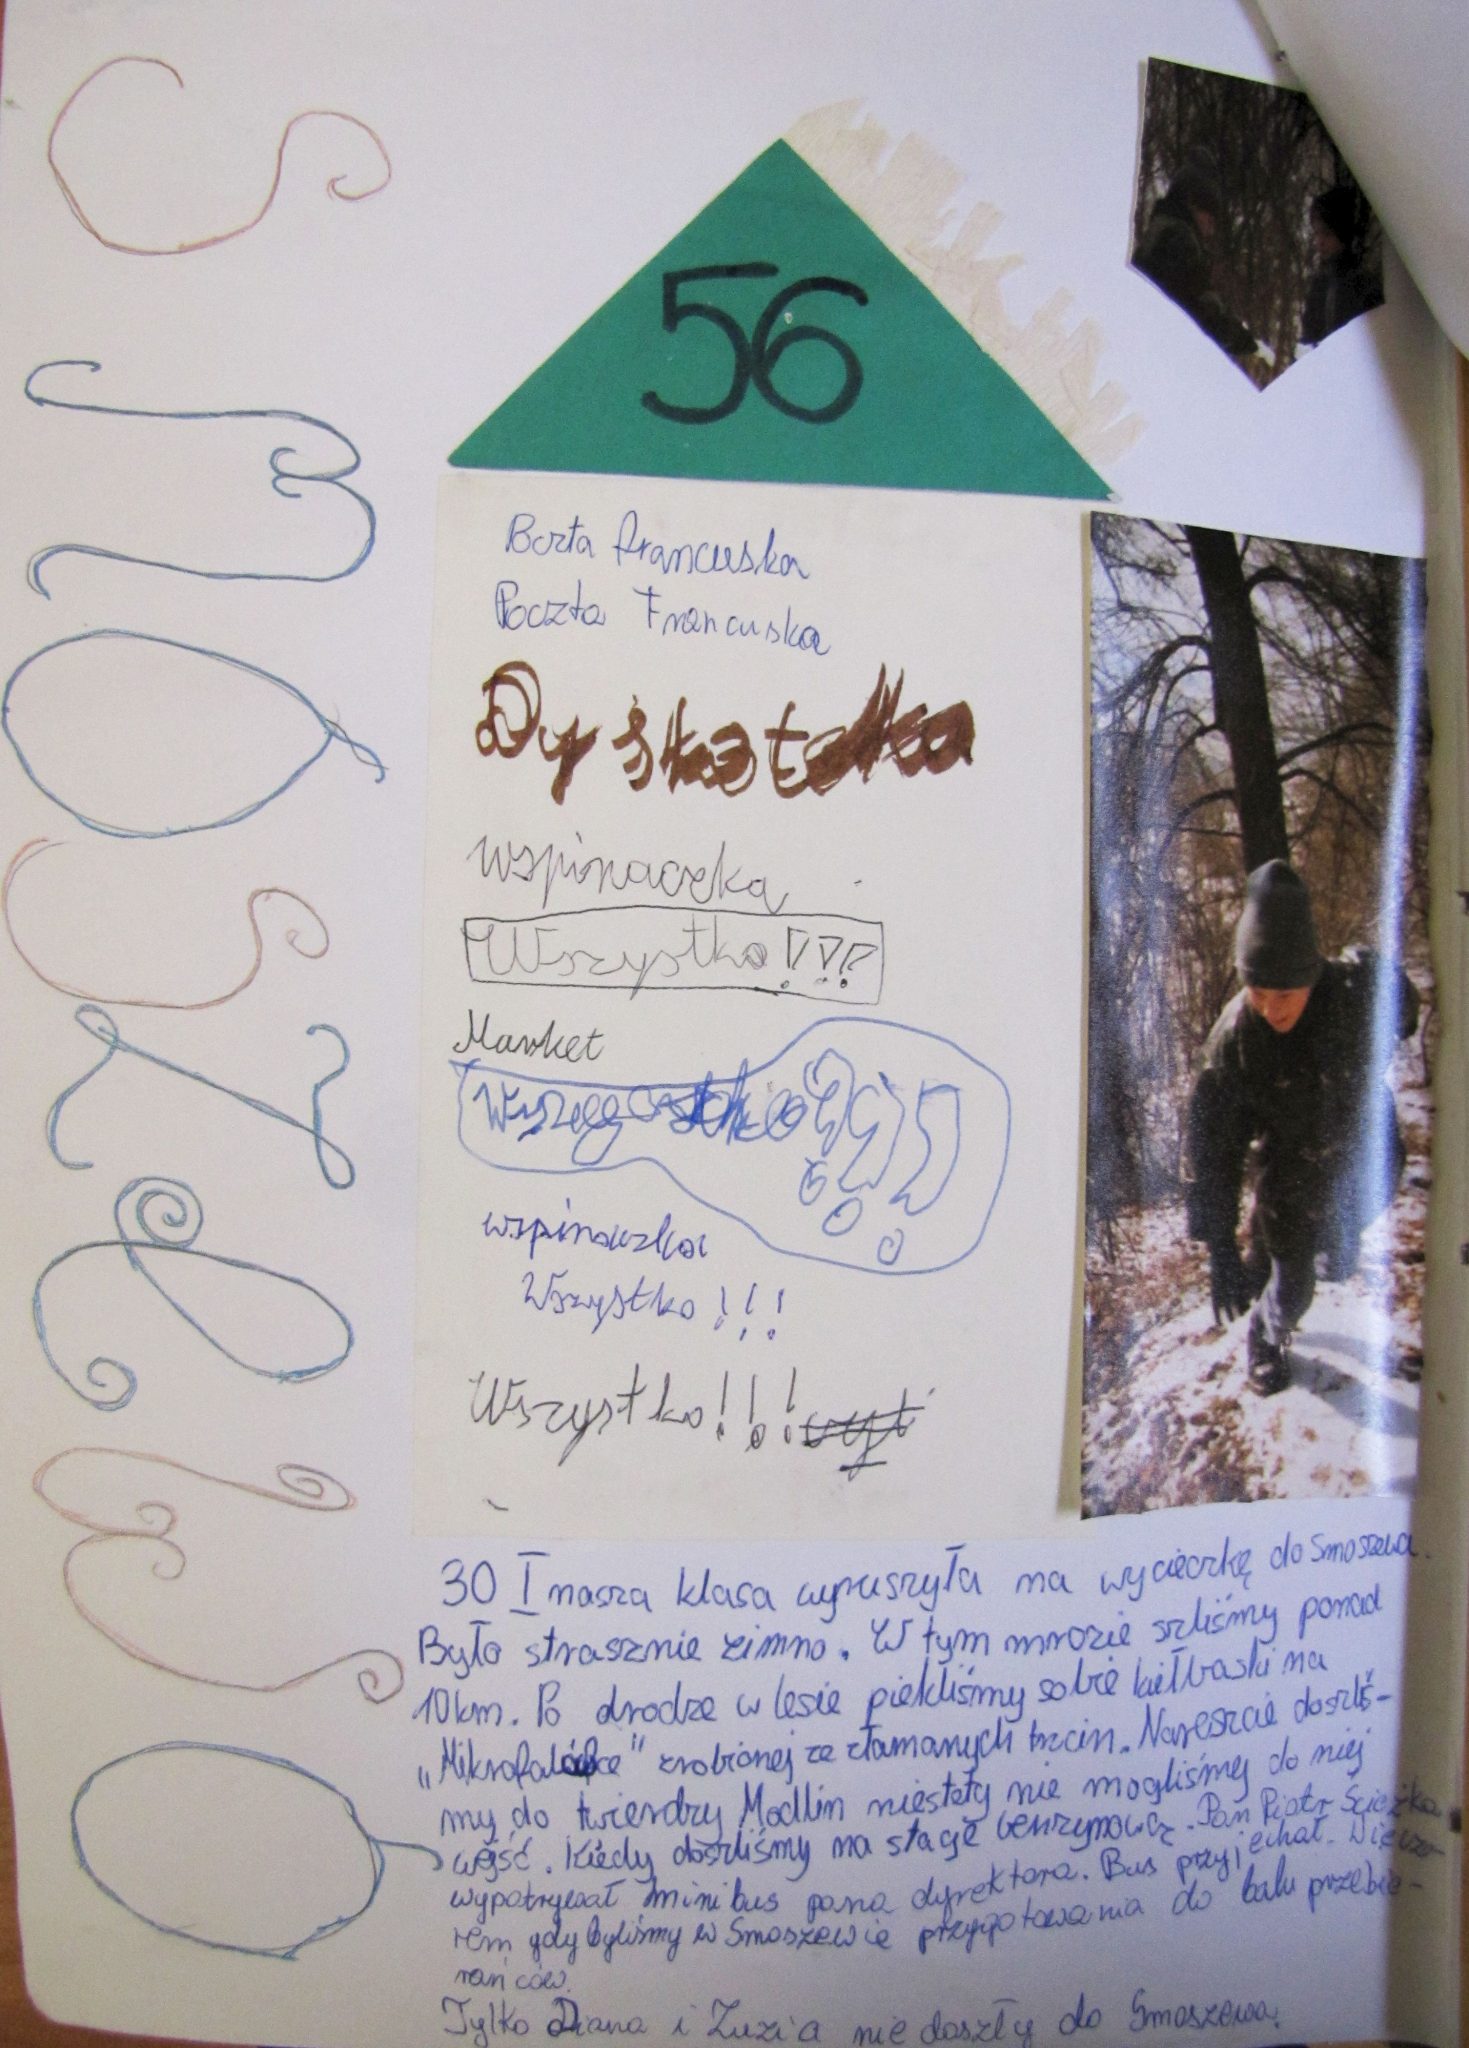 Smoszewo
56
Poczta Francuska
Poczta Francuska
Dyskoteka
wspinaczka
Wszystko!!!
Market
Wszystko!!!
wspinaczka
Wszystko!!!
Wszystko!!!
30 I nasza klasa wyruszyła na wycieczkę do Smoszewa.
Było strasznie zimno. W tym mrozie szliśmy ponad
10km. Po drodze w lesie piekliśmy sobie kiełbaski na
„Mikrofalówce" zrobionej ze złamanych trzcin. Nareszcie doszliś-
my do twierdzy Modlin niestety nie mogliśmy do niej
wejść. Kiedy doszliśmy na stację benzynową. Pan Piotr Ścieżka
wypatrywał minibus pana dyrektora. Bus przyjechał. Wieczo-
rem gdy byliśmy w Smoszewie przygotowania do balu przebie-
rańców.
Tylko Diana i Zuzia nie doszły do Smoszewa.